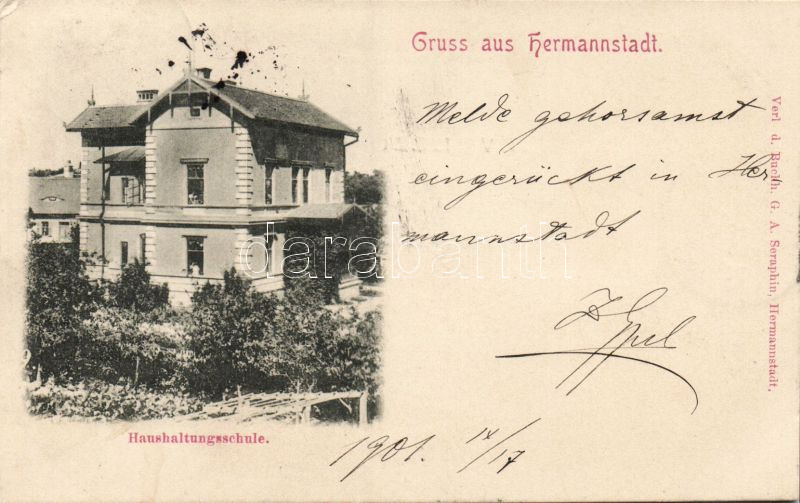 Gruss aus Hermannstadt.
Melde gehorsamst
eingerückt in Her
mannstadt
1901.
Haushaltungsschule.
Verl d. Buchh. G. A. Seraphin, Hermannstadt.
darabanth